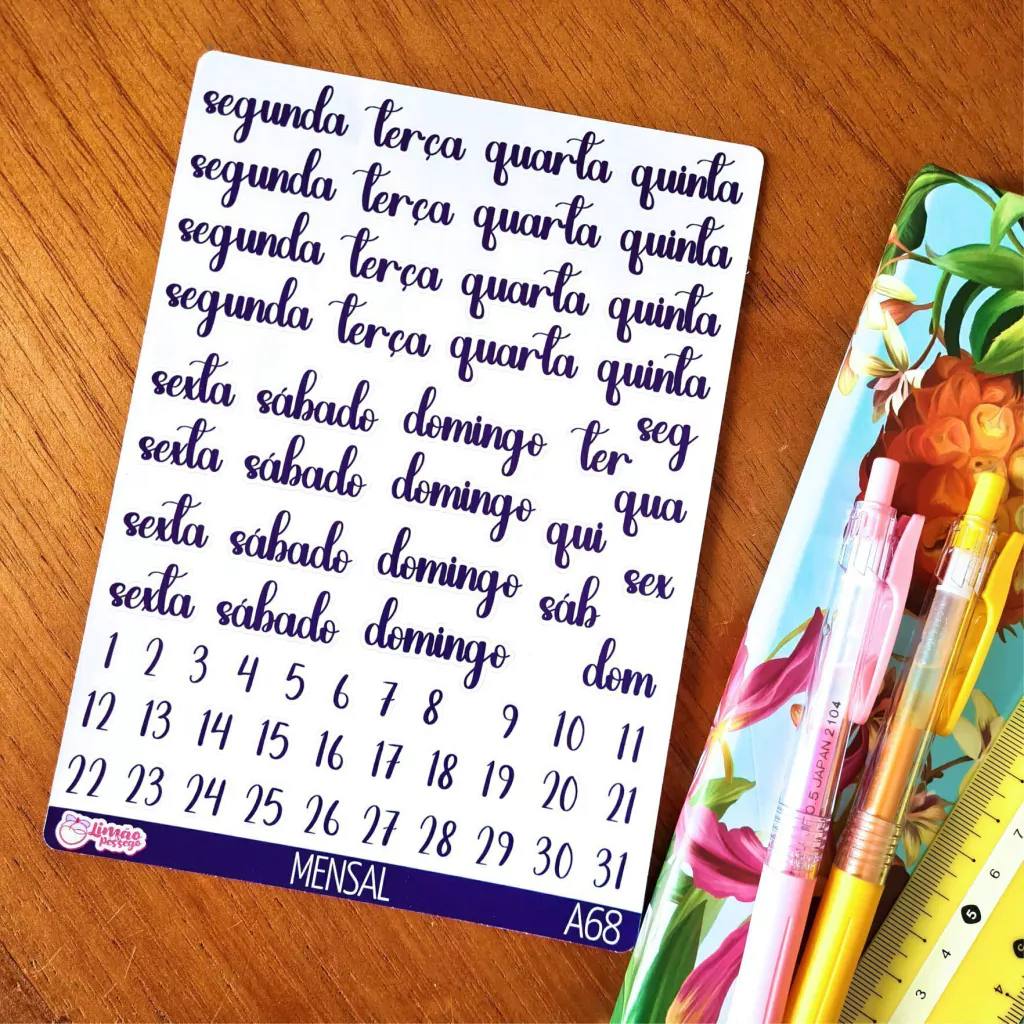 segunda terça quarta quinta
segunda terça quarta quinta
segunda terça quarta quinta
segunda terça quarta quinta
sexta sábado domingo ter seg
sexta sábado domingo qui qua
sexta sábado domingo sáb sex
sexta sábado domingo dom
1 2 3 4 5 6 7 8 9 10 11
12 13 14 15 16 17 18 19 20 21
22 23 24 25 26 27 28 29 30 31
Limão
Pessego
MENSAL
A68
0.5 JAPAN 2104
7
6
5
4
3
4